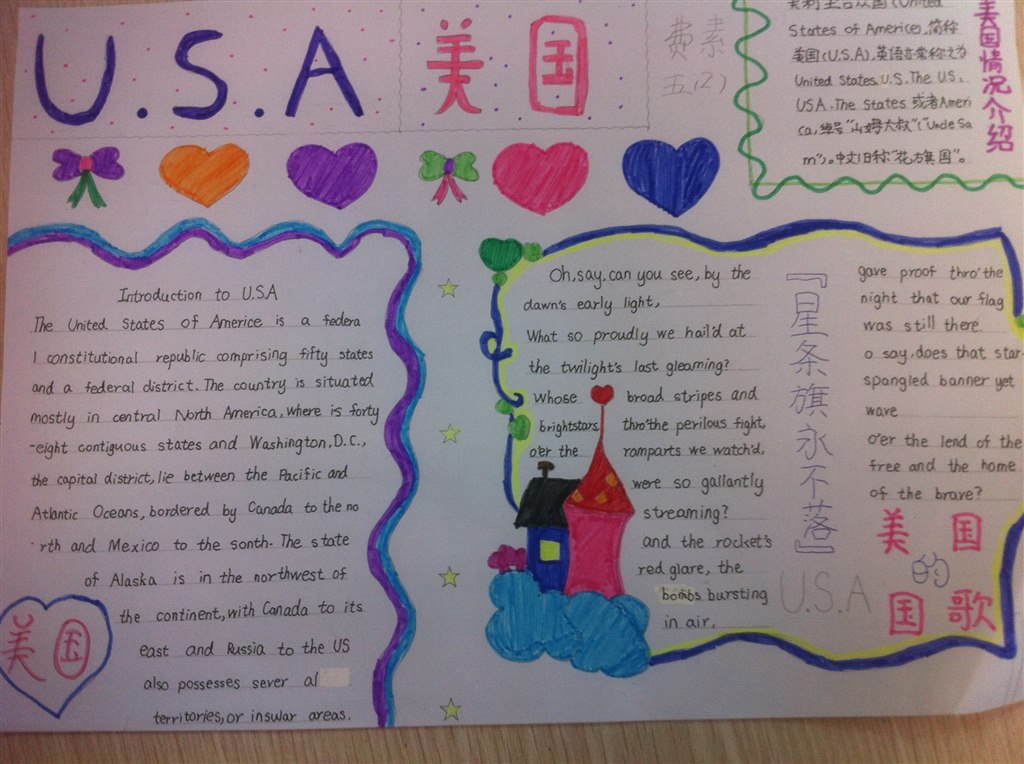 U.S.A 美国
费素
五(2)
美国情况介绍
美利坚合众国(United
States of America),简称
美国(U.S.A),英语亦常称之为
United States U.S. The U.S.
USA. The States 或者Ameri
ca, 绰号"山姆大叔"("Uncle Sa
m")。中文旧称"花旗国"。
Introduction to U.S.A
The United States of Americe is a federa
l constitutional republic comprising fifty states
and a federal district. The country is situated
mostly in central North America, where is forty
-eight contiguous states and Washington, D.c.,
the capital district, lie between the Pacific and
Atlantic Oceans, bordered by Canada to the no
rth and Mexico to the sonth. The state
of Alaska is in the northwest of
the continent, with Canada to its
east and Russia to the US
also possesses sever al
territories, or insular areas.
美国
Oh, say, can you see, by the
dawn's early light,
What so proudly we hail'd at
the twilight's last gleaming?
Whose broad stripes and
brightstars, thro'the perilous fight,
o'er the ramparts we watch'd,
were so gallantly
streaming?
and the rocket's
red glare, the
bombs bursting
in air,
『星条旗永不落』
U.S.A
gave proof thro'the
night that our flag
was still there.
o say, does that star
spangled banner yet
wave
o'er the lend of the
free and the home
of the brave?
美国
的
国歌